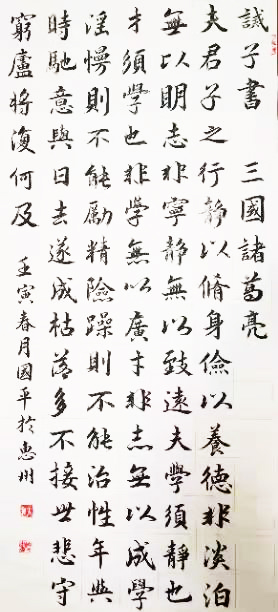 誡子書 三國諸葛亮
夫君子之行靜以脩身儉以養德非淡泊
無以明志非寧靜無以致遠夫學須靜也
才須學也非學無以廣才非志無以成學
淫慢則不能勵精險躁則不能治性年與
時馳意與日去遂成枯落多不接世悲守
窮廬將復何及 壬寅春月國平於惠州